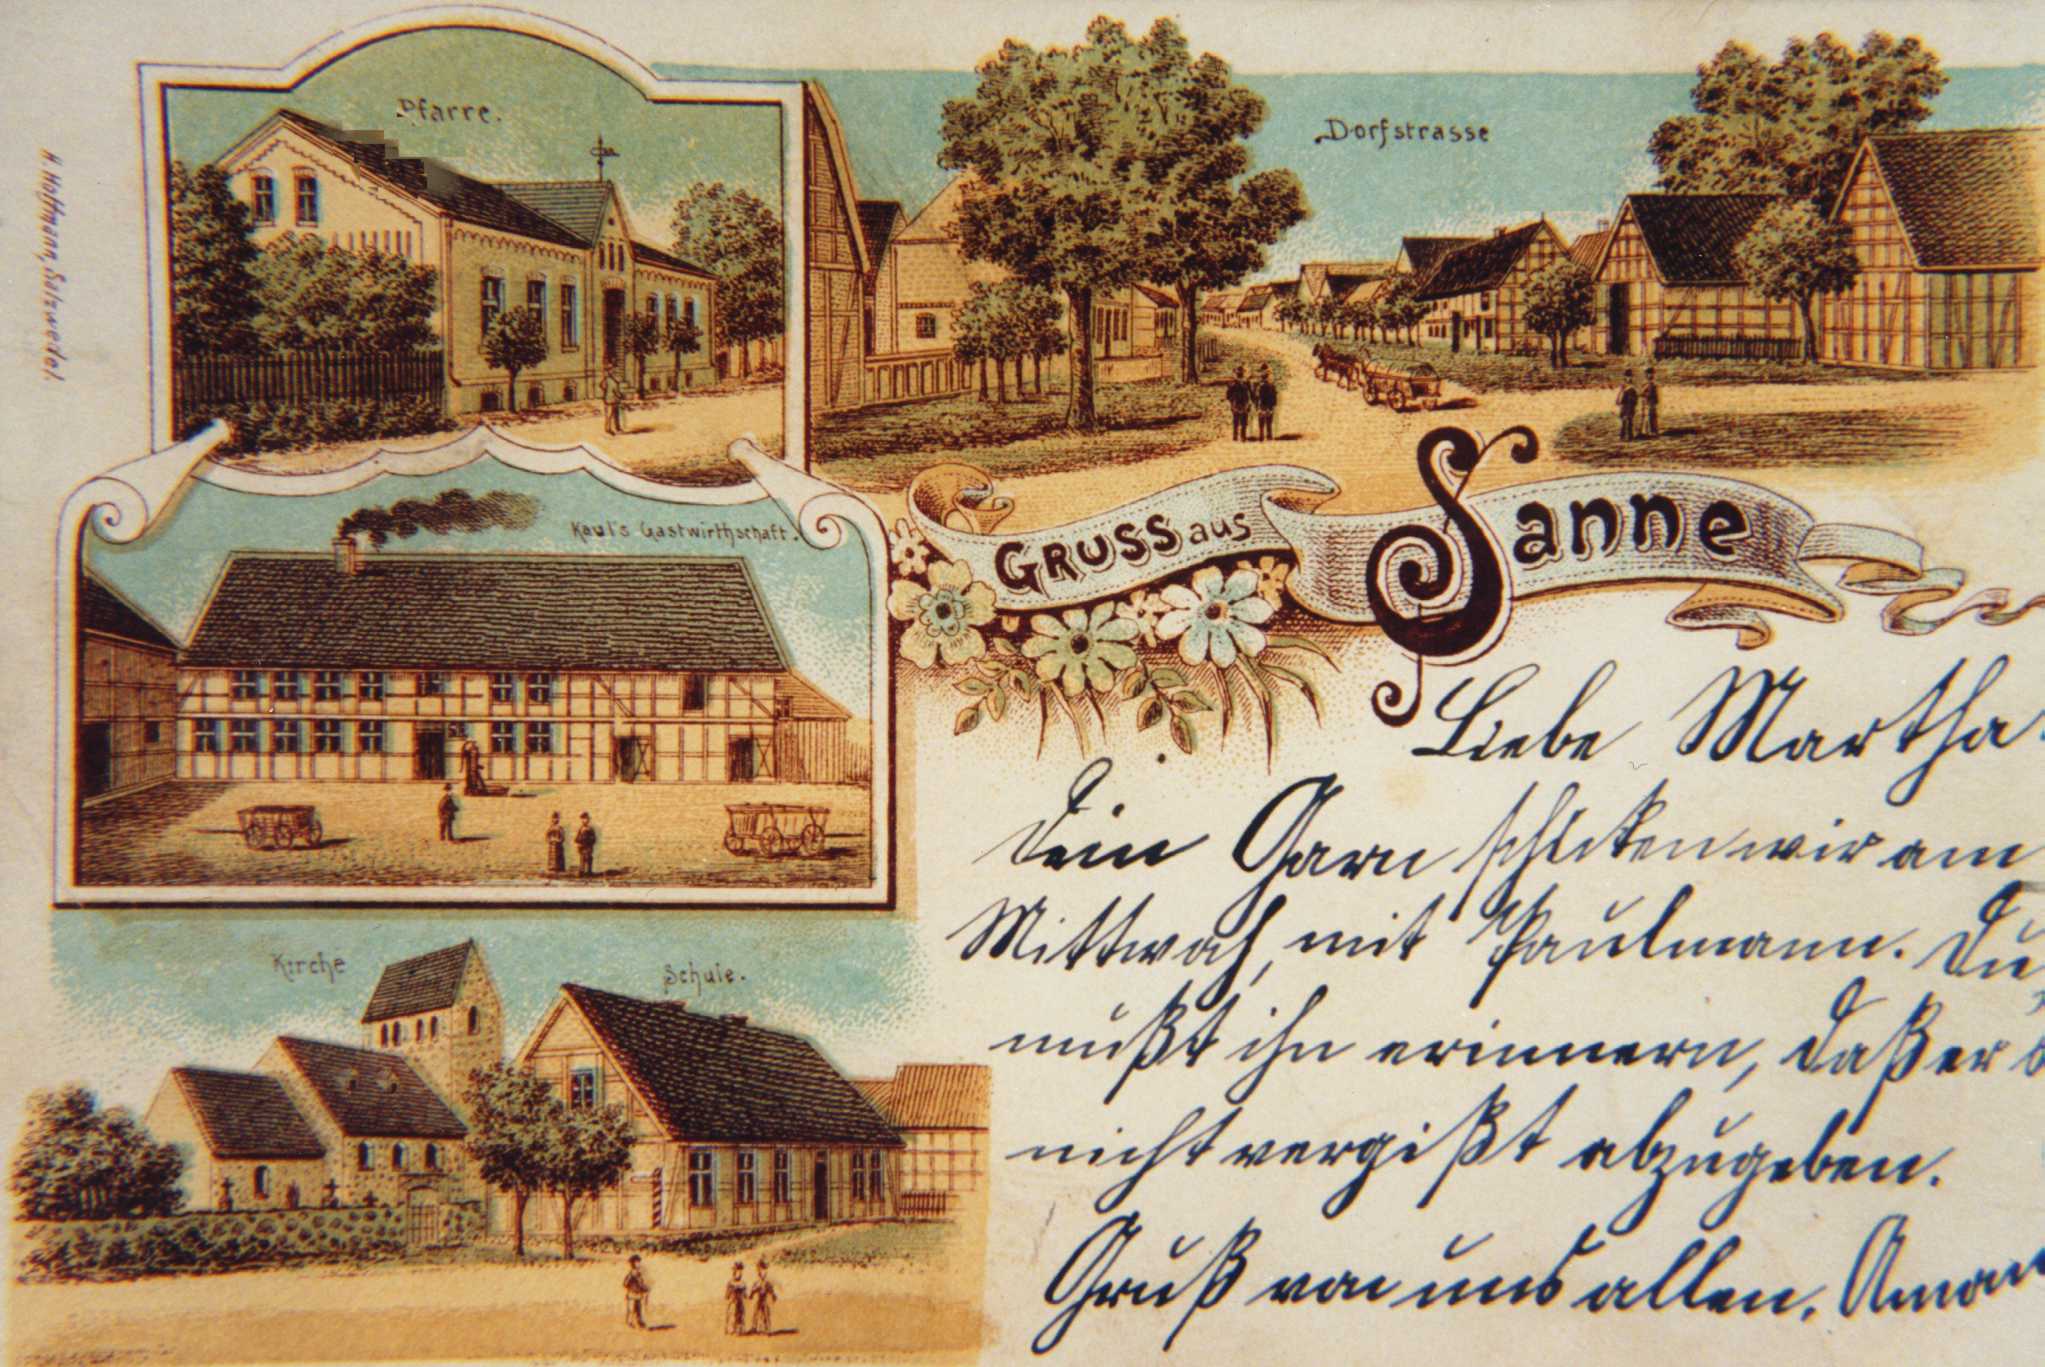 H. Hoffmann, Salzwedel.
Pfarre.
Dorfstrasse
Kaul's Gastwirthschaft.
GRUSS aus Sanne
Kirche
Schule.
Liebe Martha
Dein Garn schicken wir am
Mittwoch, mit Paulmann. Du
mußt ihn erinnern, daß er
nicht vergißt abzugeben.
Gruß von uns allen.